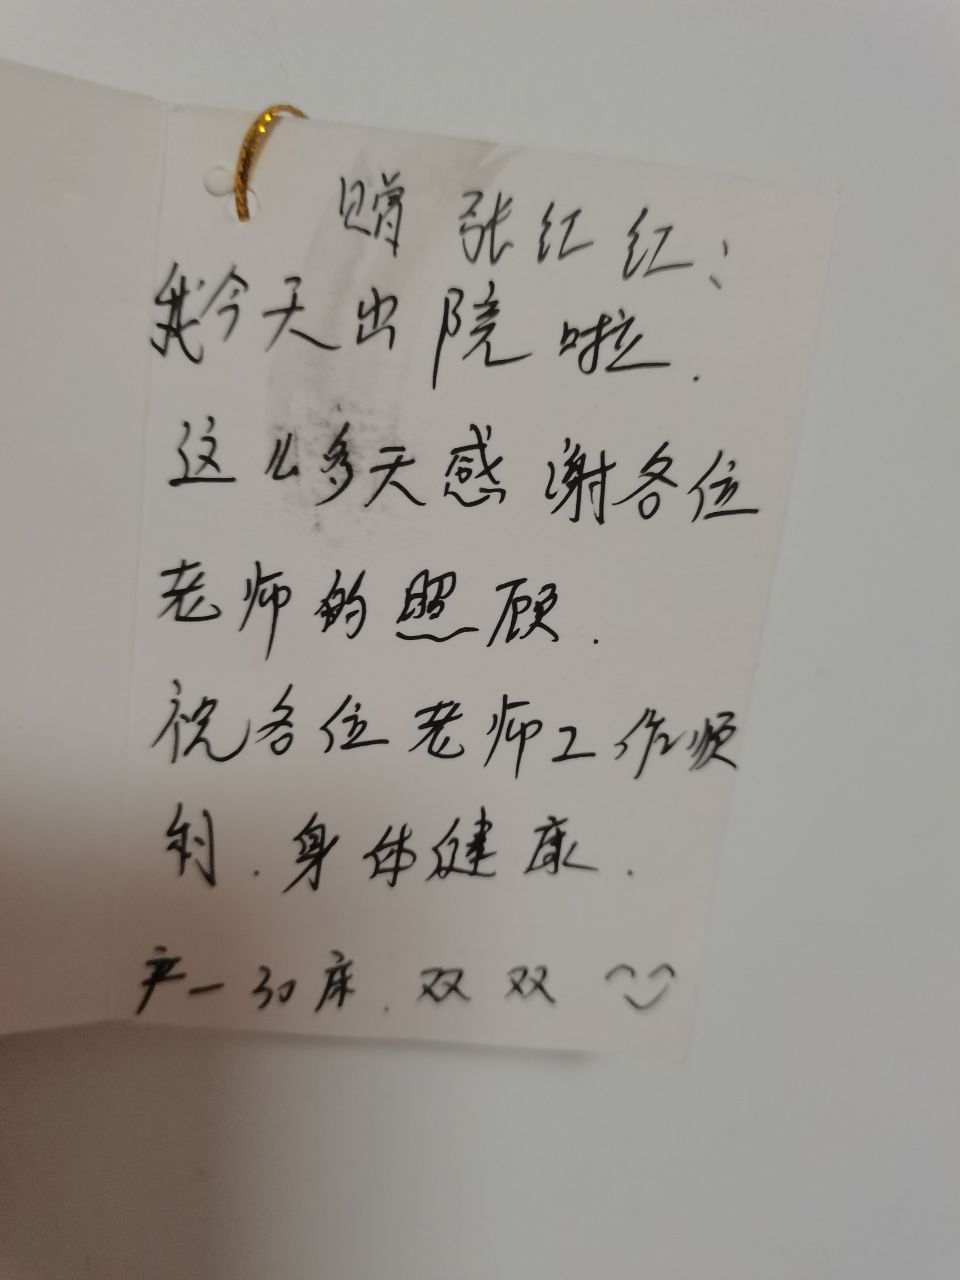 赠 张红红:
我今天出院啦.
这么多天感谢各位
老师的照顾.
祝各位老师工作顺
利.身体健康.
产一30床.双双